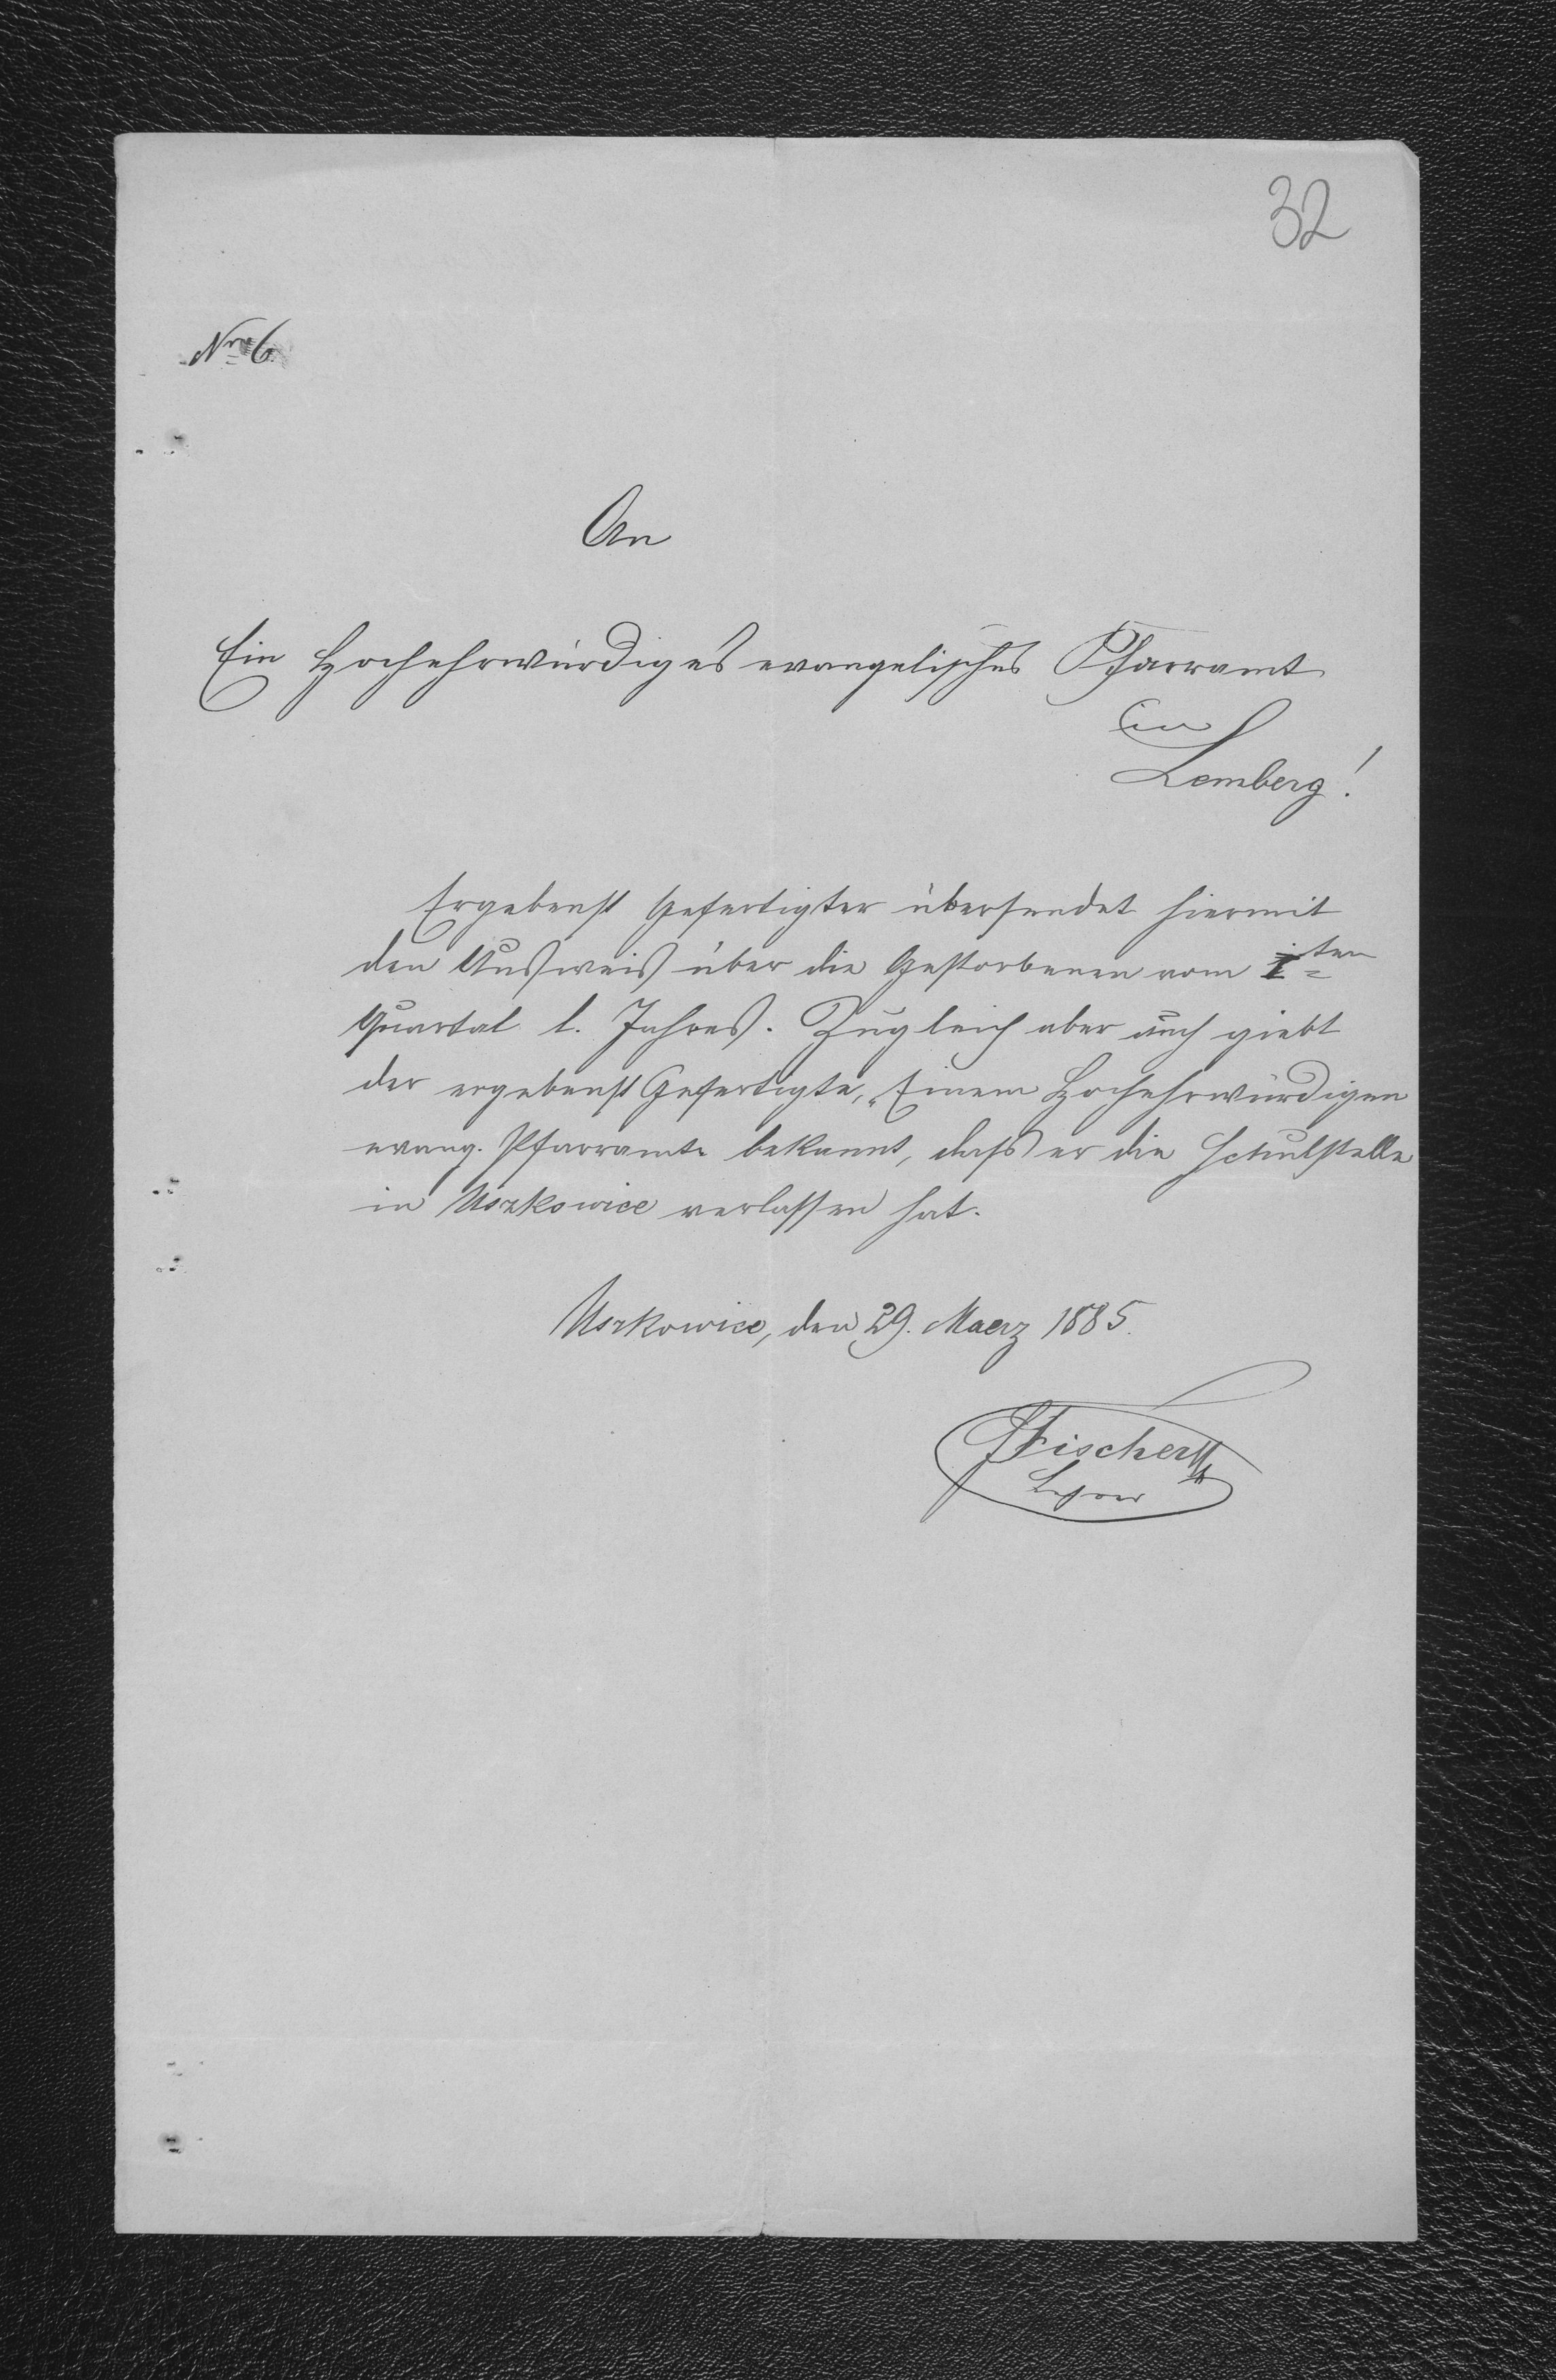 32
Nro 6.
An
Ein Hochehrwürdiges evangelisches Pfarramt
in
Lemberg!
Ergebenst Gefertigter übersendet hiermit
den Ausweis über die Gestorbenen vom I ten
Quartal l. Jahres. Zugleich aber auch giebt
der ergebenst Gefertigte, Einem Hochehrwürdigen
evang. Pfarramte bekannt, dass er die Schulstelle
in Uszkowice verlassen hat.
Uszkowice, den 29. Maerz 1885.
JFischer
Lehrer